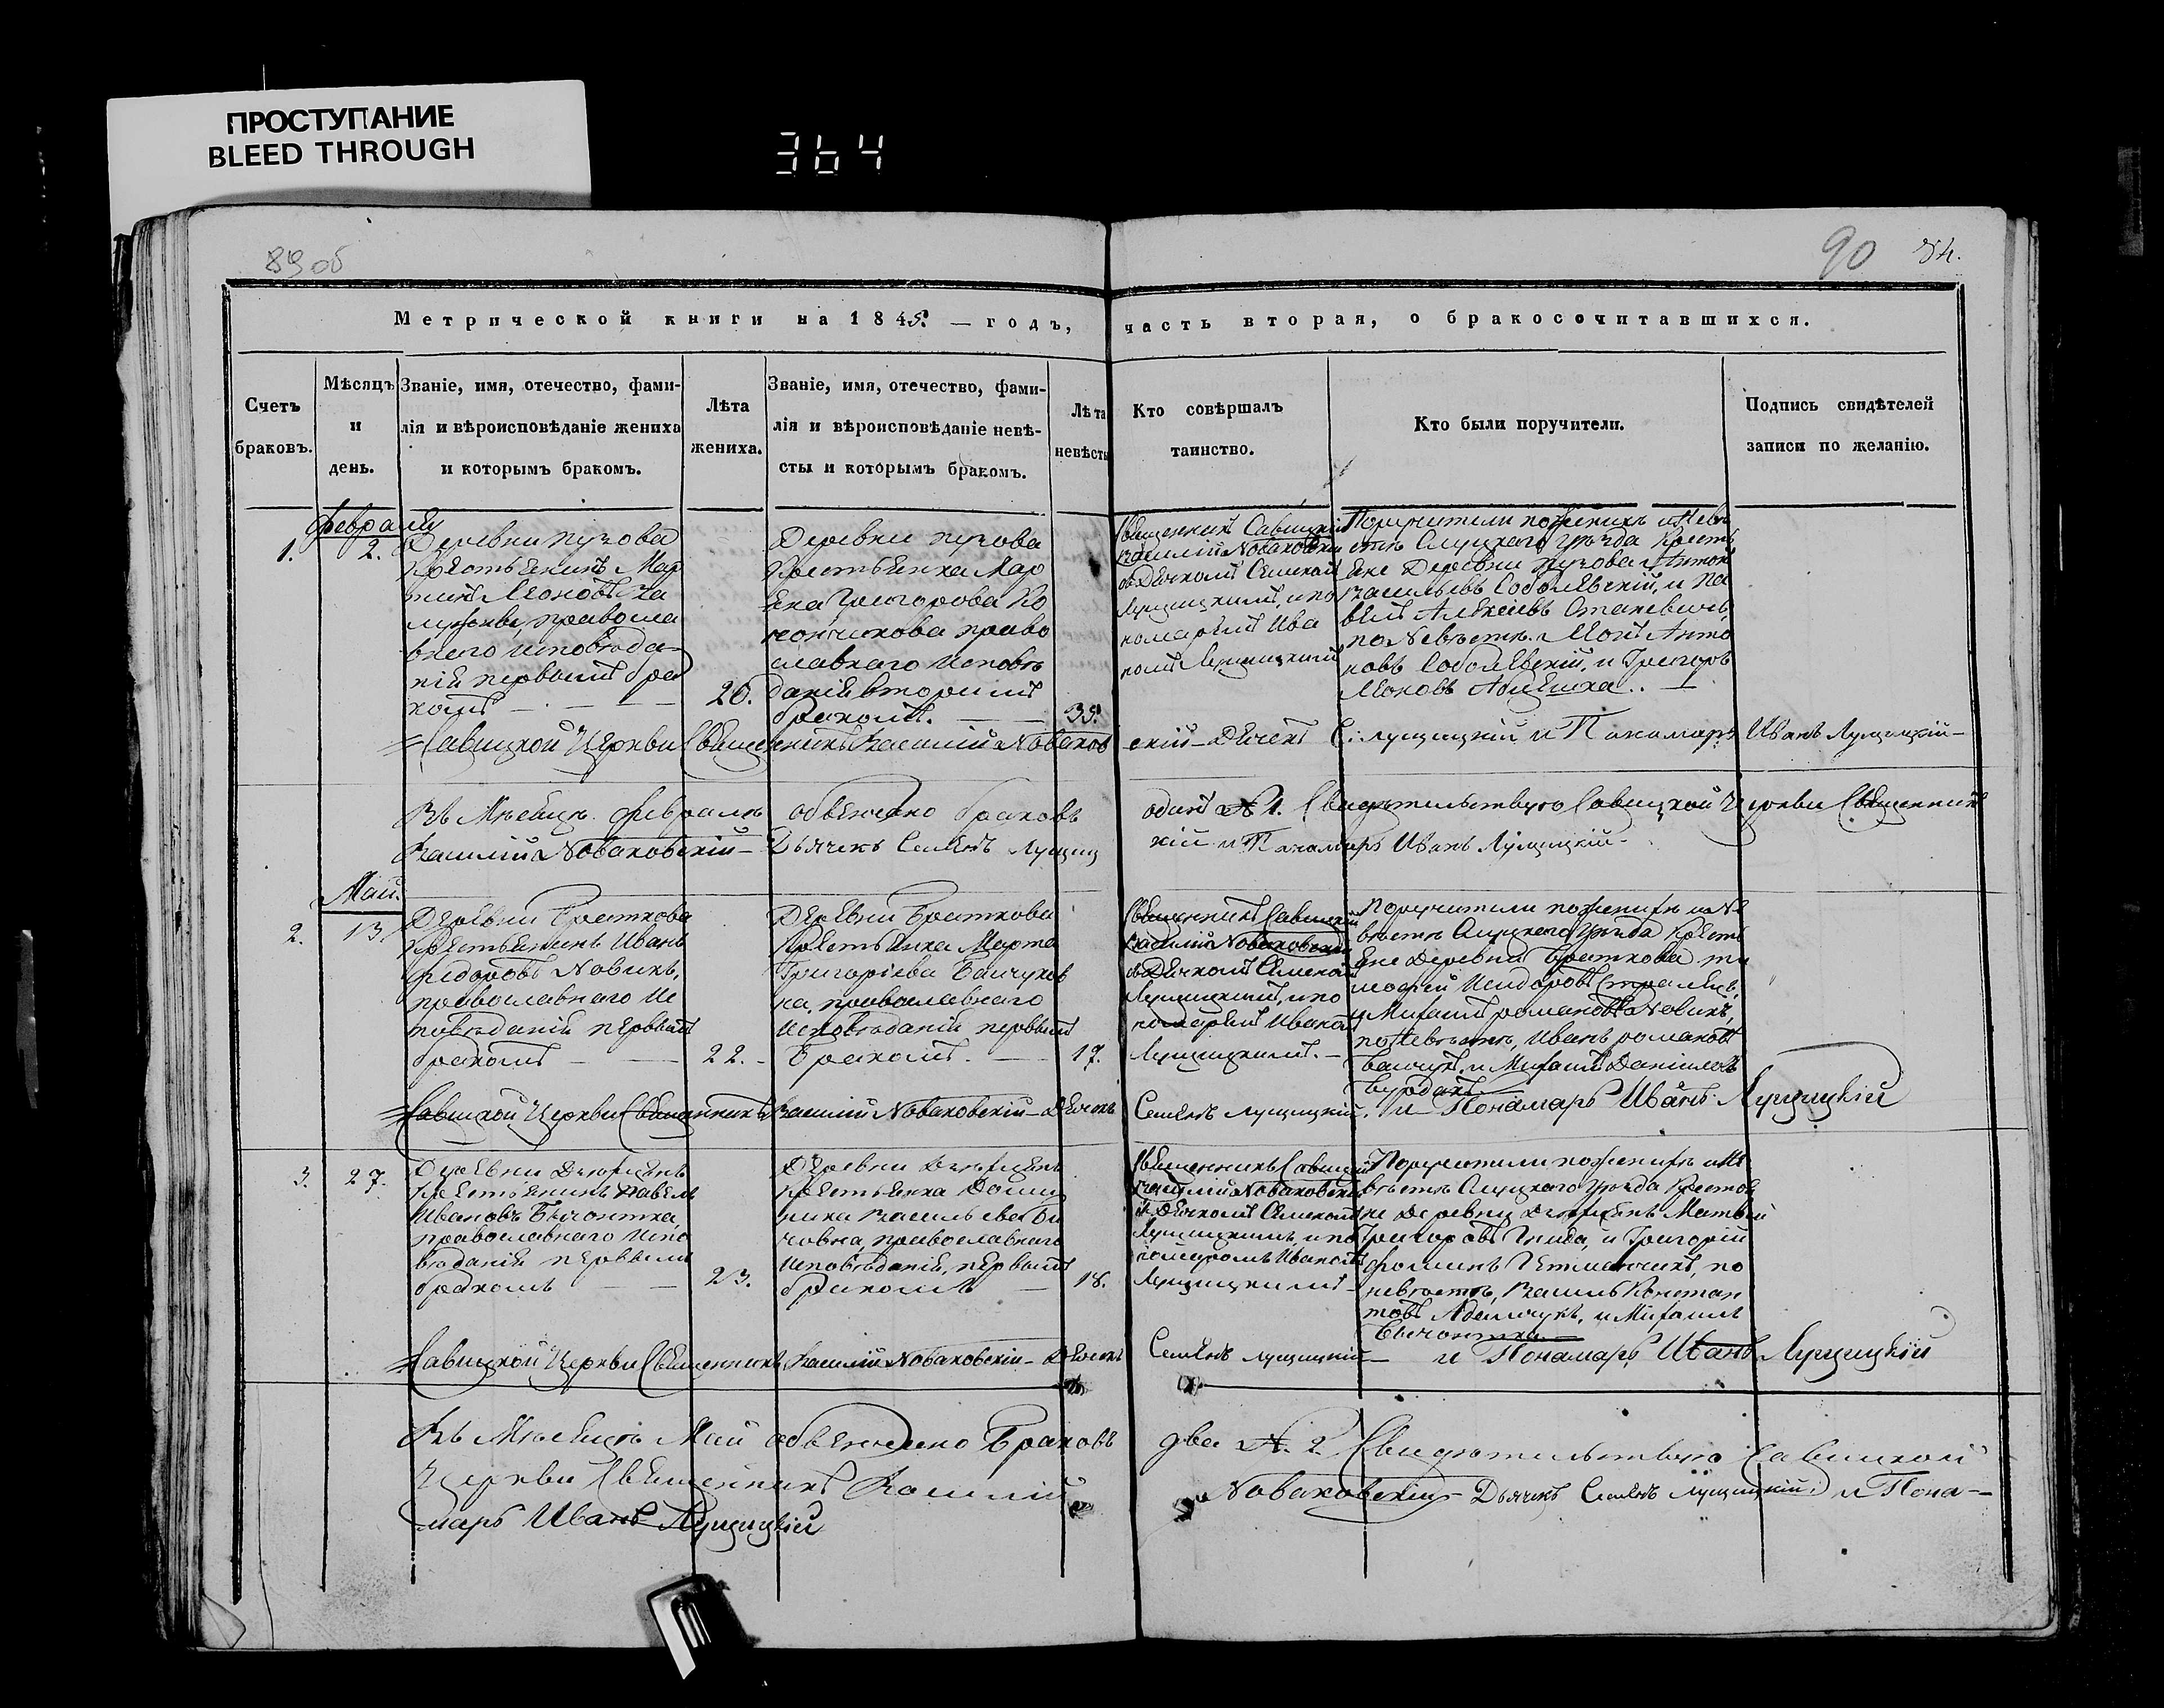 ПРОСТУПАНИЕ
BLEED THROUGH
364
89 об
90
Метрической книги на 1845. — годъ, часть вторая, о бракосочитавшихся.
Счетъ браковъ.
Мѣсяцъ и день.
Званіе, имя, отечество, фами-
лія и вѣроисповѣданіе жениха
и которымъ бракомъ.
Лѣта жениха.
Званіе, имя, отечество, фами-
лія и вѣроисповѣданіе невѣ-
сты и которымъ бракомъ.
Лѣта невѣсты
Кто совѣршалъ
таинство.
Кто были поручители.
Подпись свидѣтелей
записи по желанію.
февраля
1.
2.
Деревни пузова
Крестьянинъ Мар
тинъ Леоновъ
православ
внего исповѣда
ній первымъ бра
комъ
26.
Деревни пузова
Крестьянка Мар
Григорова Ко
права
славнаго исповѣ
даній вторимъ
бракомъ.
35.
Священникъ Савицкій
Василій Новаковскій
Лущицкимъ, и по
номаремъ Ива
номъ Лущицкимъ
Поручители по женихѣ и Невѣ
стѣ Слуцкаго уѣзда Крестъ
яне Деревни пузова Антонъ
Васильевъ Соболевскій, и Па
велъ Алексѣевъ Станкевичъ,
по Невѣстѣ. Анто
новъ Соболевскій, и Григоръ
Леоновъ
Савицкой Церкви Священникъ Василій Новаков
скій - Дьячекъ С: Лущицкій и Панамаръ Иванъ Лущицкій -
Въ Мѣсяцѣ февралѣ обвенчано браковъ одинъ № 1. Свидѣтельствую Савицкой Церкви Священникъ
Василій Новаковскій - Дьячекъ Семенъ Лущиц
кій и Панамаръ Иванъ Лущицкій.
Май.
2.
13
Деревни Браткова
Крестьянинъ Иванъ
Федоровъ Новикъ,
православнаго Ис
повѣданій первымъ
бракомъ
22.
Деревни Браткова
Крестьянка Марта
Григоріева
на, православнаго
исповѣданій первымъ
Бракомъ.
17.
Священникъ Савицкій
Василій Новаковскій
Лущицкимъ, и по
номаремъ Иваномъ
Лущицкимъ.
Поручители по женихѣ и Не
вѣстѣ Слуцкаго уѣзда Крестъ
яне Деревни Браткова Ти
мофей
и Михаилъ романовъ Новикъ,
по Невѣстѣ, Иванъ романовъ
и Михаилъ Даниловъ
Бурдакъ
Савицкой Церкви Священникъ Василій Новаковскій - Дьячекъ
Семенъ Лущицкій. и Понамаръ Иванъ Лущицкій
3.
27.
Деревни
Крестьянинъ Павелъ
Ивановъ
православнаго Испо
вѣданій первымъ
бракомъ
23.
Деревни
Крестьянка Доми
ника Васильева
православнаго
исповѣданій, первымъ
бракомъ
18.
Священникъ Савицкій
Василій Новаковскій
Лущицкимъ, и по
номаромъ Иваномъ
Лущицкимъ
Поручители по женихѣ и Не
вѣстѣ Слуцкаго уѣзда Крестья
не Деревни Матвей
Григоровъ Гнида, и Григорій
Фоминъ Гетманчикъ, по
невѣстѣ, Василь Констан
товъ Адамчукъ, и Михаилъ
Савицкой Церкви Священникъ Василій Новаковскій - Дьячекъ
Семенъ Лущицкій - и Понамаръ Иванъ Лущицкій
Въ Мѣсяцѣ Май обвенчано Браковъ два № 2. Свидѣтельствую Савицкой
Церкви Священникъ Василій Новаковскій - Дьячекъ Семенъ Лущицкій и Пона-
маръ Иванъ Лущицкій